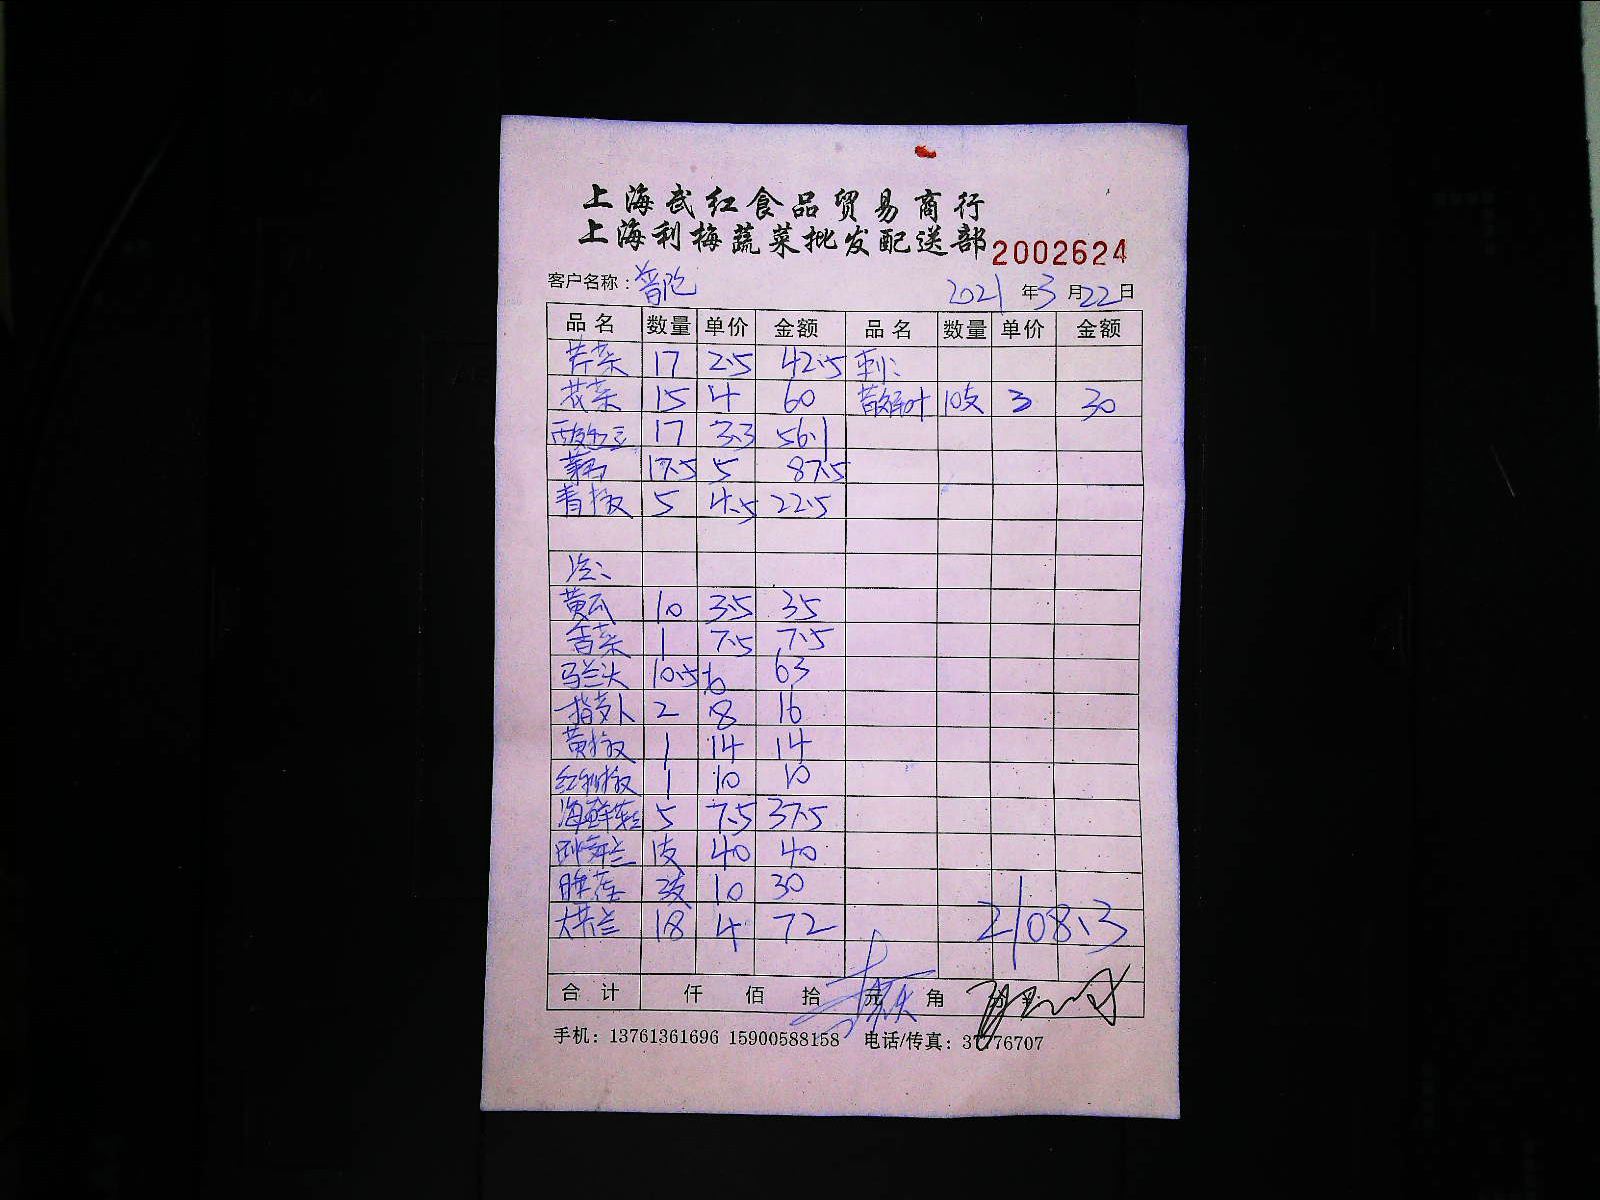 上海武红食品贸易商行
上海利梅蔬菜批发配送部 2002624
客户名称：普陀 2021年3月22日
品名 数量 单价 金额 品名 数量 单价 金额
芹菜 17 2.5 42.5 刺：
花菜 15 4 60 10支 3 30
17 3.3 56.1
莴 17.5 5 87.5
青椒 5 4.5 22.5
冷：
黄瓜 10 3.5 35
香菜 1 7.5 7.5
马兰头 10.5 6 63
指萝卜 2 8 16
黄椒 1 14 14
红利椒 1 10 10
海鲜 5 7.5 37.5
兰 1支 40 40
睡莲 3支 10 30
大共兰 18 4 72
2108.3
合计 仟 佰 拾 元 角
手机：13761361696 15900588158 电话/传真：37776707